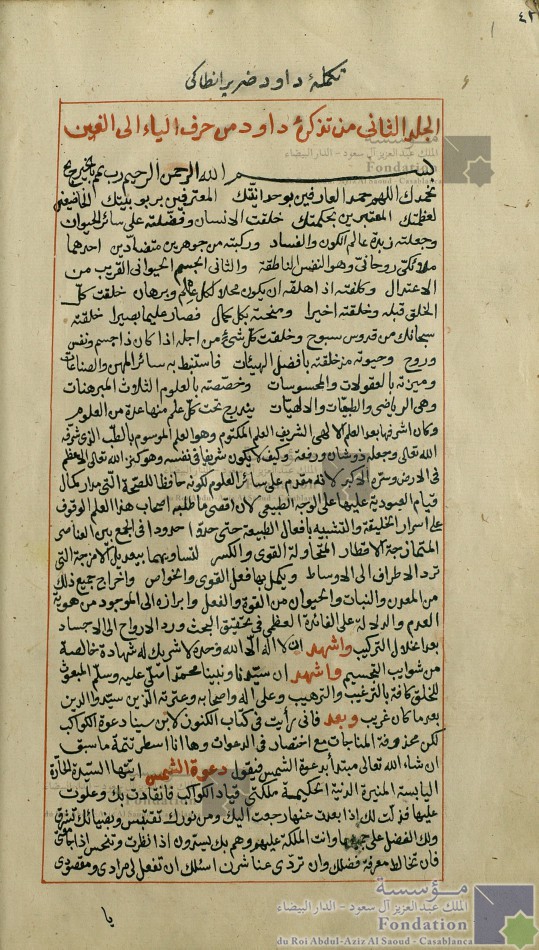 ٤٢
تكملة داود ضرير انطاكى
الجلد الثانى من تذكرة داود من حرف الياء الى الغين
بسم الله الرحمن الرحيم رب تمم بالخير
نحمدك اللهم حمد العارفين بوحدانيتك المعترفين بربوبيتك الخاضعين
لعظمتك المعتبرين بحكمتك خلقت الانسان وفضلته على سائر الحيوان
وجعلته زبدة عالم الكون والفساد وركبته من جوهرين متضادين احدهما
ملائكى روحانى وهو النفس الناطقة والثانى الجسم الحيوانى القريب من
الاعتدال وكلفته اذ اهلته ان يكون محلا لكل علم وبرهان خلقت كل
الخلق قبله وخلقته اخيرا ومنحته بكل كمال فصار عليما بصيرا خلقته
سبحانك من قدوس سبوح وخلقت كل شئ من اجله اذا كان ذا جسم ونفس
وروح وحيوته مذ خلقته بافضل الهيئات فاستنبط به سائر المهن والصناعات
وميزته بالمعقولات والمحسوسات وخصصته بالعلوم الثلاث المبرهنات
وهى الرياضى والطبعات والالهيات يندرج تحت كل علم منها عدة من العلوم
وكان اشرفها بعد العلم الالهى الشريف العلم المكتوم وهو العلم الموسوم بالطب الذى شرفه
الله تعالى وجعله ذو شان ورفعة وكيف لا يكون شريفا فى نفسه وهو كنز الله تعالى الاعظم
فى الارض وسره الاكبر لانه مقدم على سائر العلوم لكونه حافظا للصحة التى مدار كمال
قيام العبودية عليها على الوجه الطبيعى لان اقصى ما طلبه اصحاب هذا العلم الوقوف
على اسرار الخليقة والتشبيه بافعال الطبيعة حتى حدوا حدودا فى الجمع بين العناصر
المتمازجة الاقطار المتحاولة القوى والكسر لتساويهما بتعديل الامزجة التى
ترد الاطراف الى الاوساط ويكمل بها فعل القوى والخواص واخراج جميع ذلك
من المعدن والنبات والحيوان من القوة والفعل وابرازه الى الموجود من هوية
العدم والدلالة على الفائدة العظمى فى تحقيق البحث ورد الارواح الى الاجساد
بعد انحلال التركيب واشهد ان لا اله الا الله وحده لا شريك له شهادة خالصة
من شوايب التجسيم واشهد ان سيدنا ونبينا محمد اصلى عليه وسلم المبعوث
للخلق كافة بالترغيب والترهيب وعلى آله واصحابه وعترته الذين سيدوا الدين
بعد ما كان غريب وبعد فانى رأيت فى كتاب الكنون لابن سينا دعوة الكواكب
لكن محذوفة المناجات مع اختصار فى الدعوات وها انا اسطر تتمة ما سبق
ان شاء الله تعالى مبتدأ بدعوة الشمس فنقول دعوة الشمس ايتها السيدة الحارة
اليابسة المنيرة الدنية الحكيمة ملكتى قياد الكواكب فانقادت بك وعلوت
عليها فزلت لك اذا بعدت عنها رجعت اليك ومن نورك تقتبس وبضيائك تشرق
ولك الفضل على جميعها وانت الملكة عليهم وهم بك يسترون اذا نظرت وتنحس اذا
فان تخالط معرفة فضلك وان تردى عنا شرك اسئلك ان تفعلى مرادى ومقصودى
يا
مؤسسة
الملك عبد العزيز آل سعود - الدار البيضاء
Fondation
du Roi Abdul-Aziz Al Saoud - Casablanca